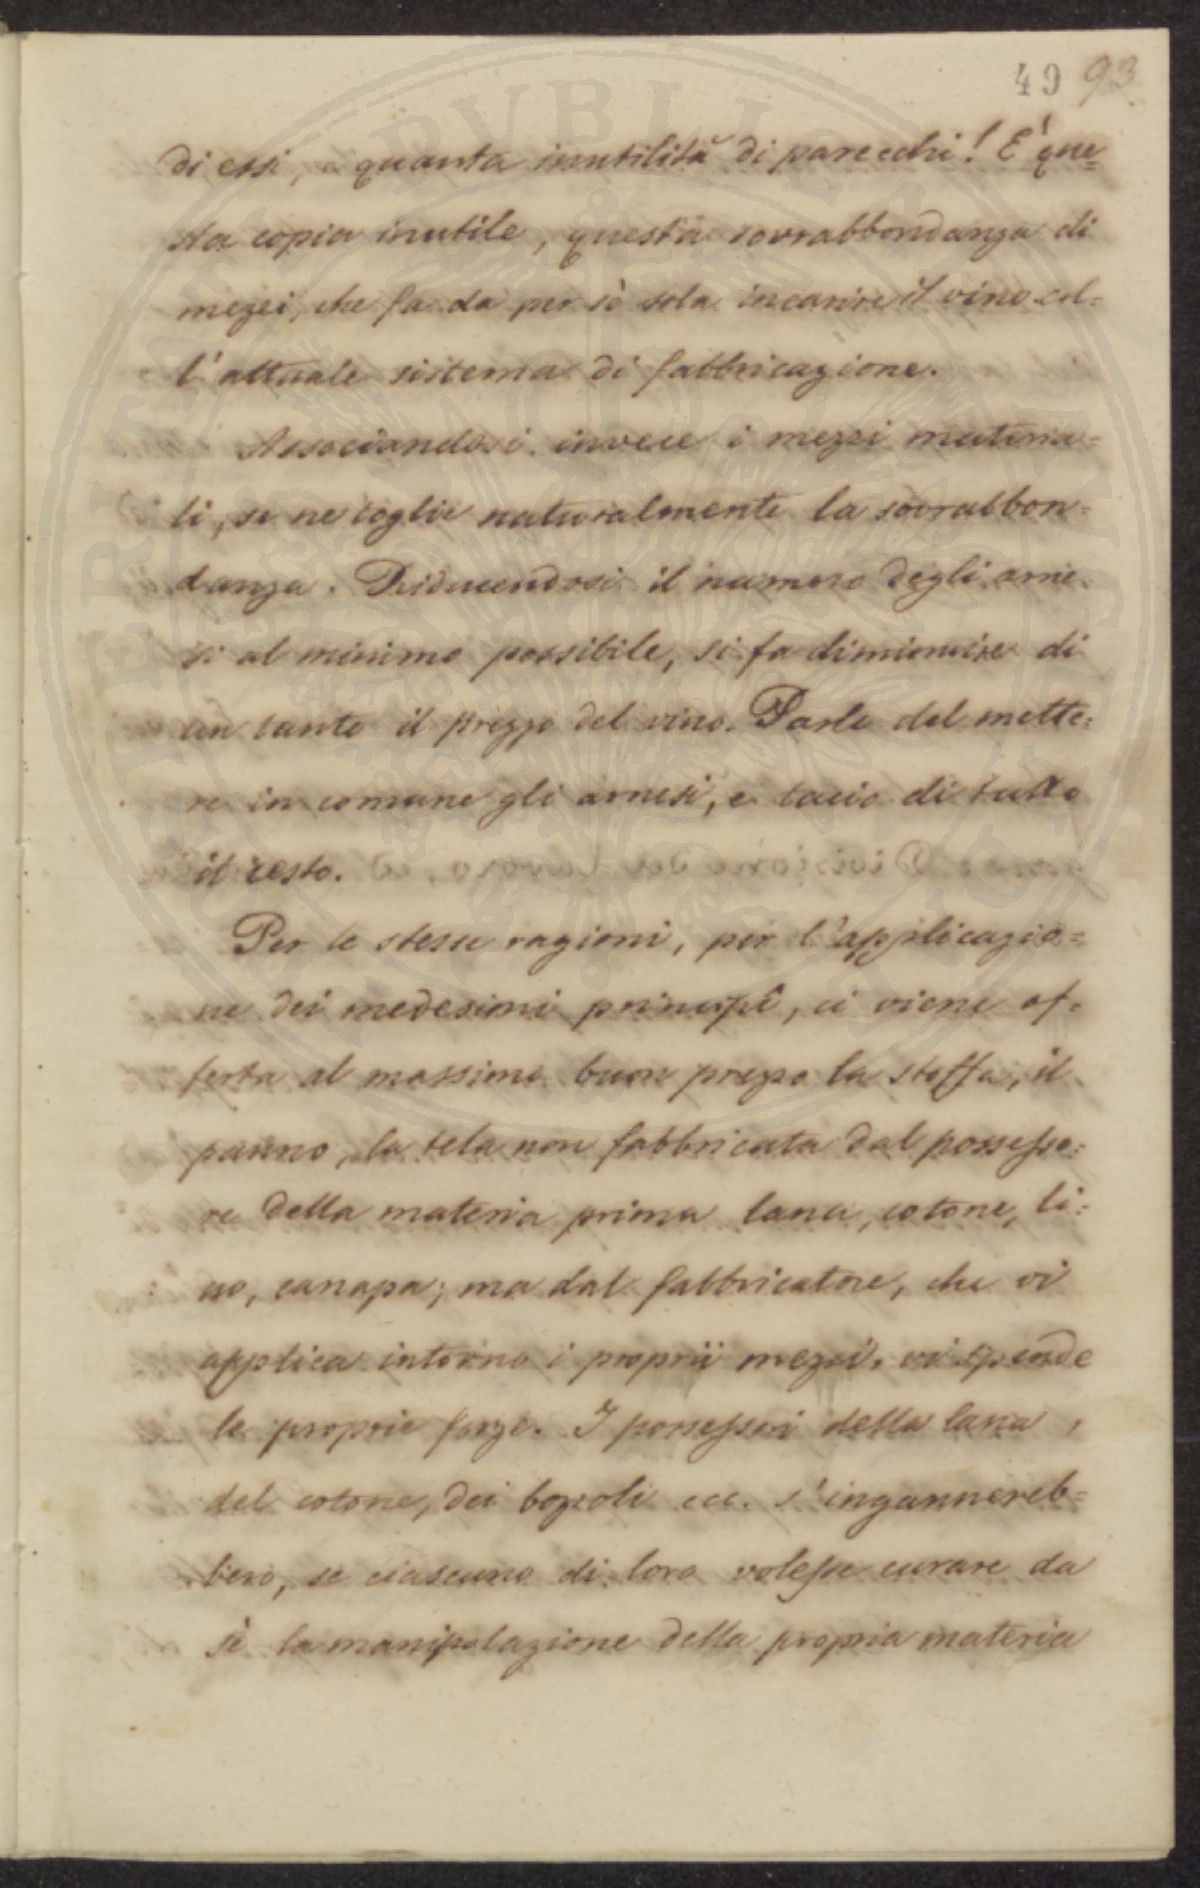 49 93
di essi, quanta inutilità di parecchi! E' que=
sta copia inutile, questa sovrabbondanza di
mezzi, che fa da per sè sola incarire il vino col=
l'attuale sistema di fabbricazione.
Associandosi invece i mezzi materia=
li, se ne toglie naturalmente la sovrabbon=
danza. Riducendosi il numero degli arne=
si al minimo possibile, si fa diminuire di
un tanto il prezzo del vino. Parlo del mette=
re in comune gli arnesi, e tacio di tutto
il resto.
Per le stesse ragioni, per l'applicazio=
ne dei medesimi principî, ci viene of=
ferta al massimo buon prezzo la stoffa, il
panno, la tela non fabbricata dal possesso=
re della materia prima lana, cotone, li=
no, canapa; ma dal fabbricatore, che vi
applica intorno i proprii mezzi, vi spende
le proprie forze. I possessori della lana,
del cotone, dei bozzoli ecc. s'ingannereb=
bero, se ciascuno di loro volesse curare da
sè la manipolazione della propria materia